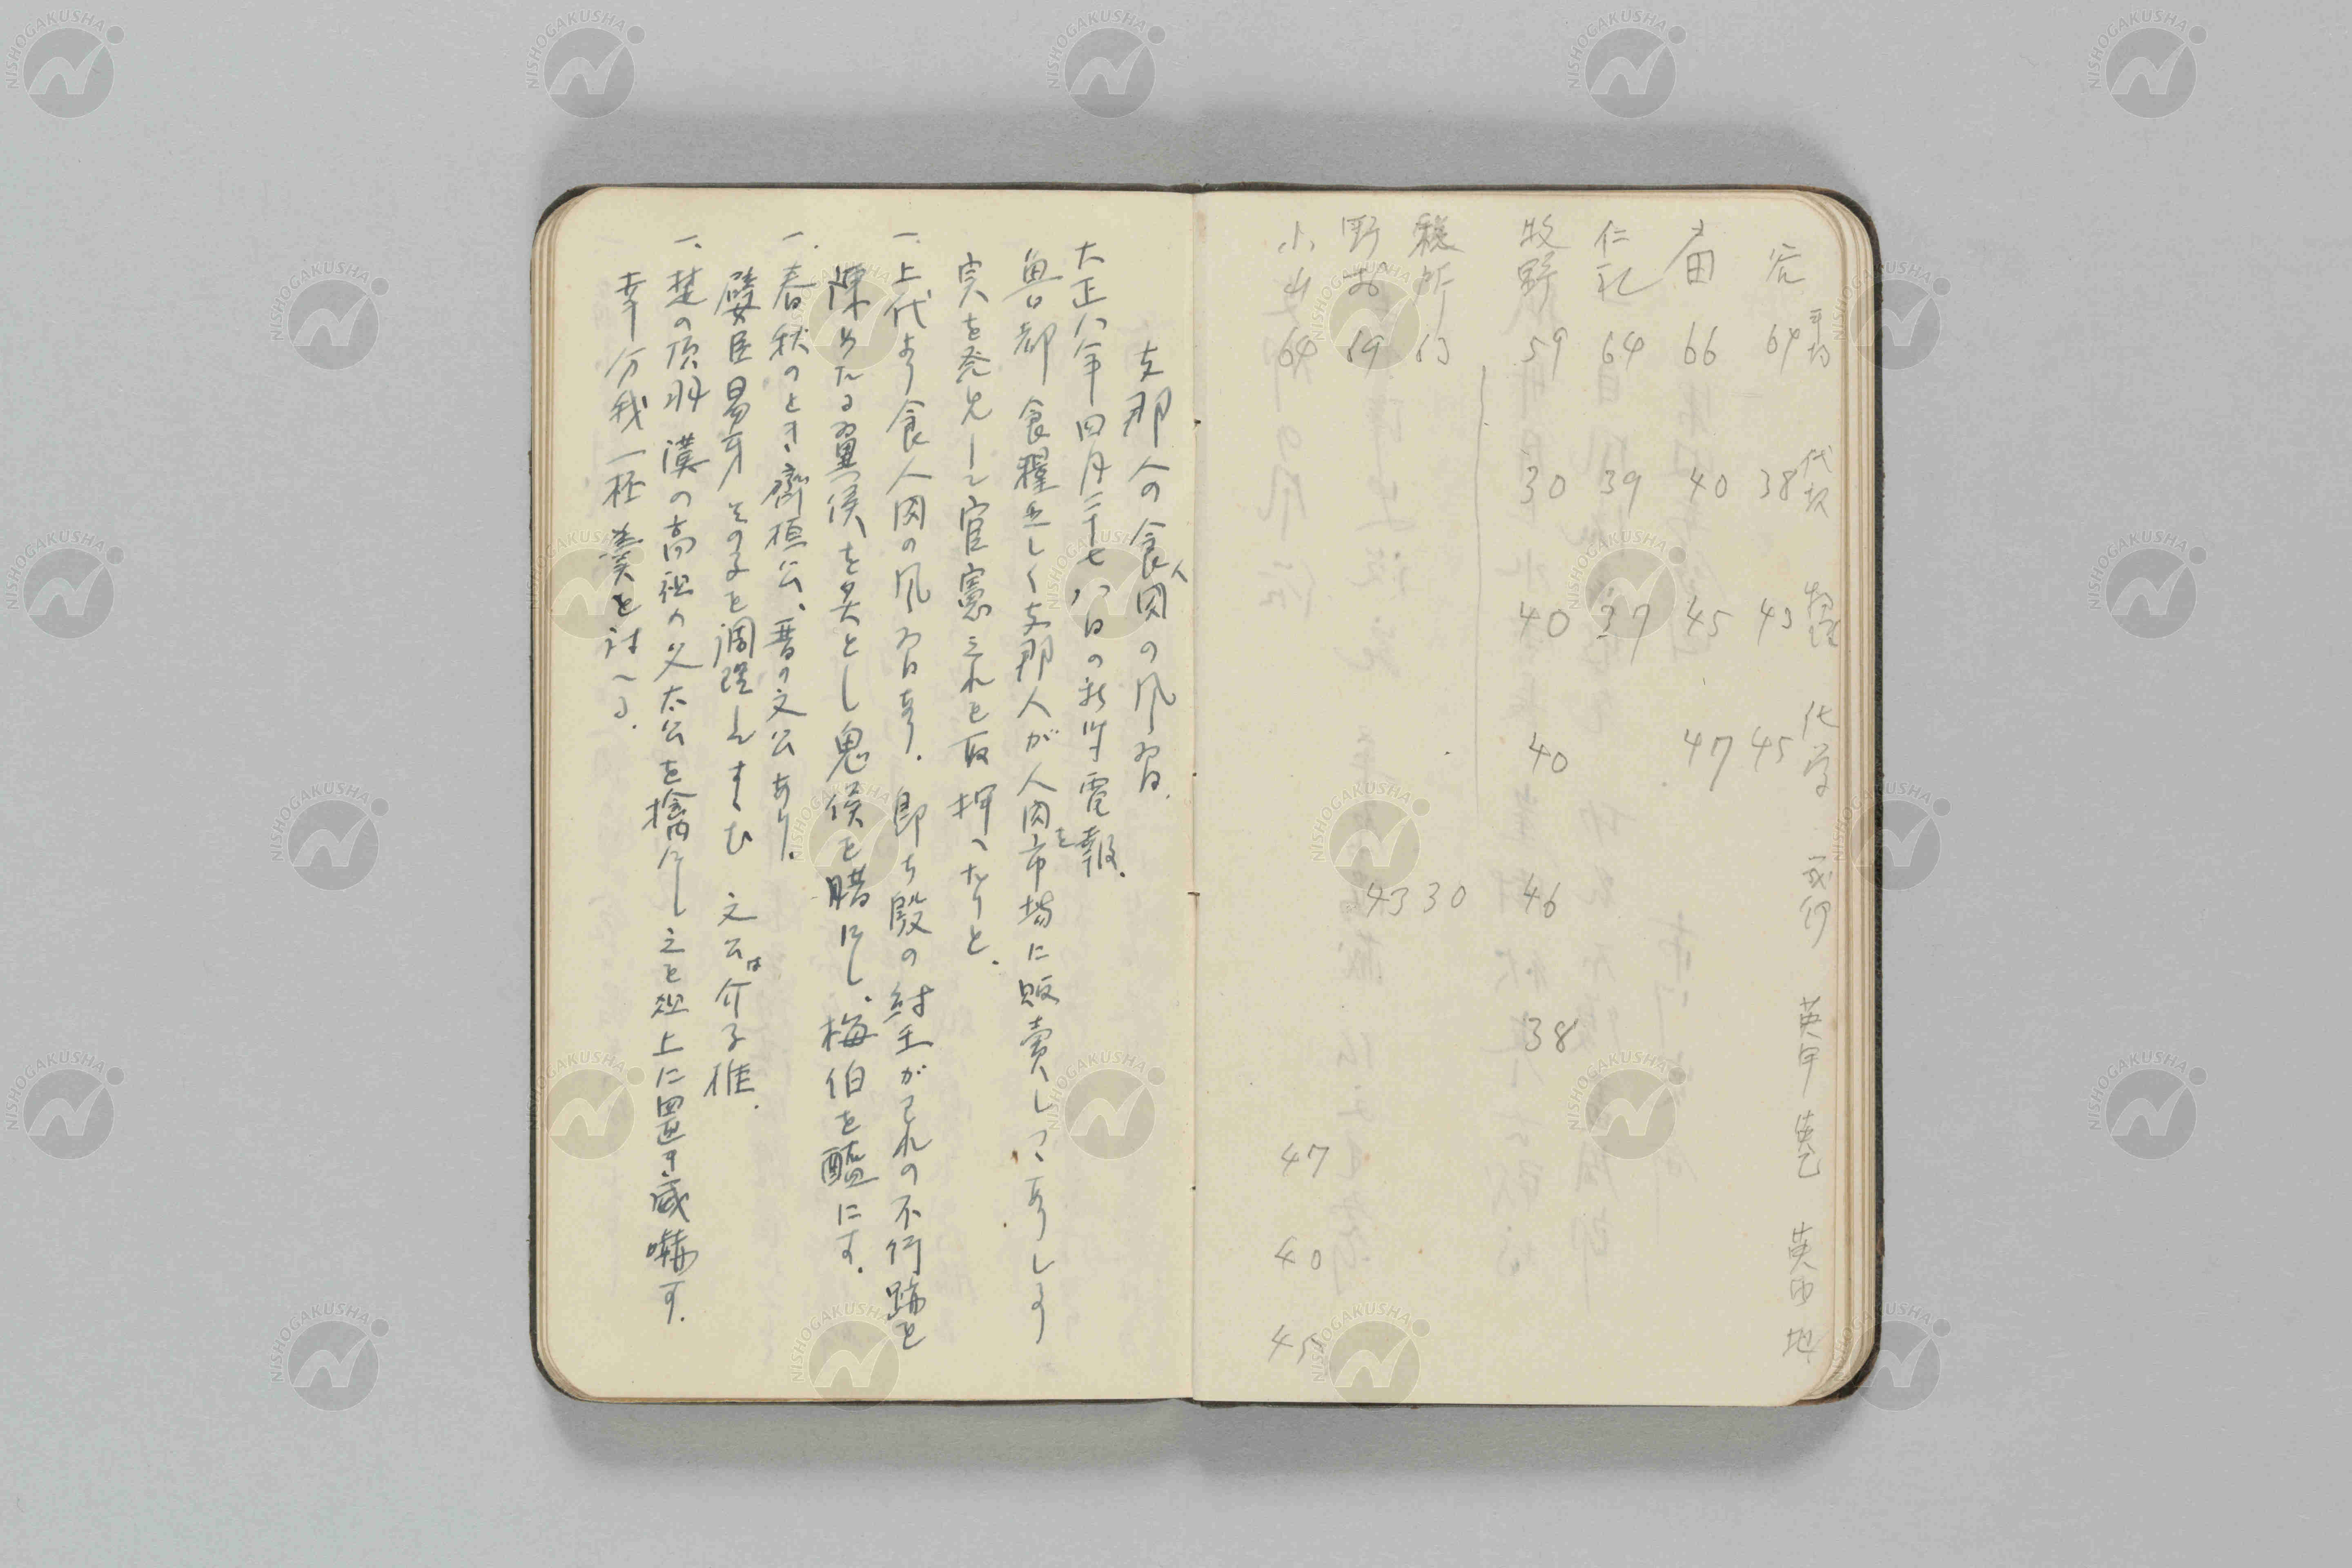 平均 代数 物 化学 英甲 英乙 英 地
谷 64 38 43 45
倉田 66 40 45 47
仁礼 64 39 37
牧野 59 30 40 40 46 38
税所 63 30
野お 59 43
小山 64 47 40 45
支那人の食人肉の風習.
大正八年四月二十七八日の新聞電報.
魯都食糧乏しく支那人が人肉を市場に販賣しつゝありし事
実を発見して官憲これを取押へたりと.
一.上代より食人肉の風習あり.即ち殷の紂王がこれの不行跡を
陳めたる翼侯を炙とし鬼侯を腊にし.梅伯を醢にす.
一.春秋のとき齊桓公、晋の文公あり.
嬖臣易牙その子を調理してすゝむ 文公は介子推.
一.楚の項羽漢の高祖の父太公を擒にし之を俎上に置き威嚇す.
幸分我一杯羹と討へる.
NISHOGAKUSHA